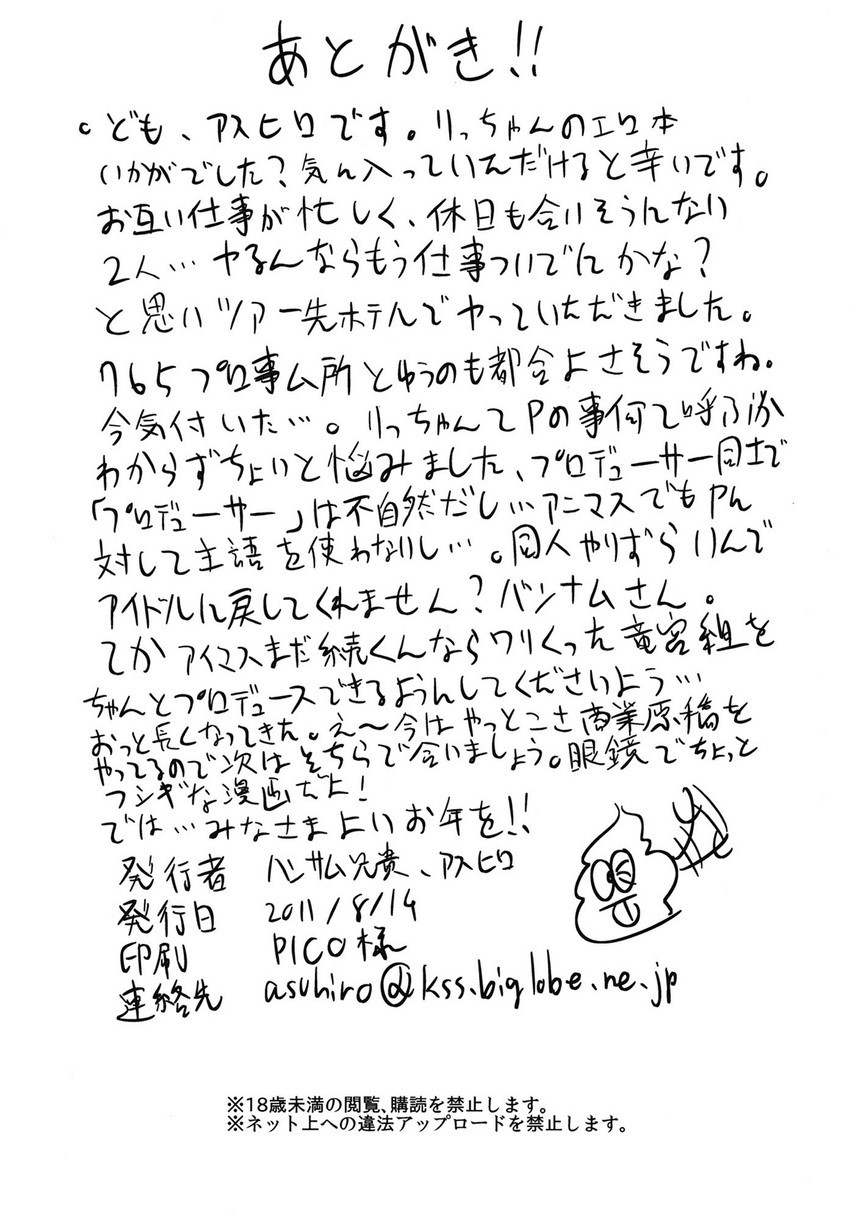 あとがき!!
。ども、アスヒロです。りっちゃんのエロ本
いかがでした?気に入っていただけると幸いです。
お互い仕事が忙しく、休日も合いそうにない
2人…ヤるんならもう仕事ついでにかな?
と思いツアー先ホテルでヤっていただきました。
765プロ事ム所とゆうのも都合よさそうですね。
今気付いた…。りっちゃんてPの事何て呼ぶか
わからずちょいと悩みました、プロデューサー同士で
「プロデューサー」は不自然だし…アニマスでもPに
対して主語を使わないし…。同人やりずらいんで
アイドルに戻してくれません?バンナムさん。
てかアイマスまだ続くんならワリくった竜宮組を
ちゃんとプロデュースできるようにしてくださいよう…
おっと長くなってきた。え~今はやっとこさ商業原稿を
やってるので次はそちらで会いましょう。眼鏡でちょっと
フシギな漫画だよ!
では…みなさまよいお年を!!
発行者 ハンサム兄貴、アスヒロ
発行日 2011/8/14
印刷 PICO様
連絡先 asuhiro@kss.biglobe.ne.jp
※18歳未満の閲覧、購読を禁止します。
※ネット上への違法アップロードを禁止します。